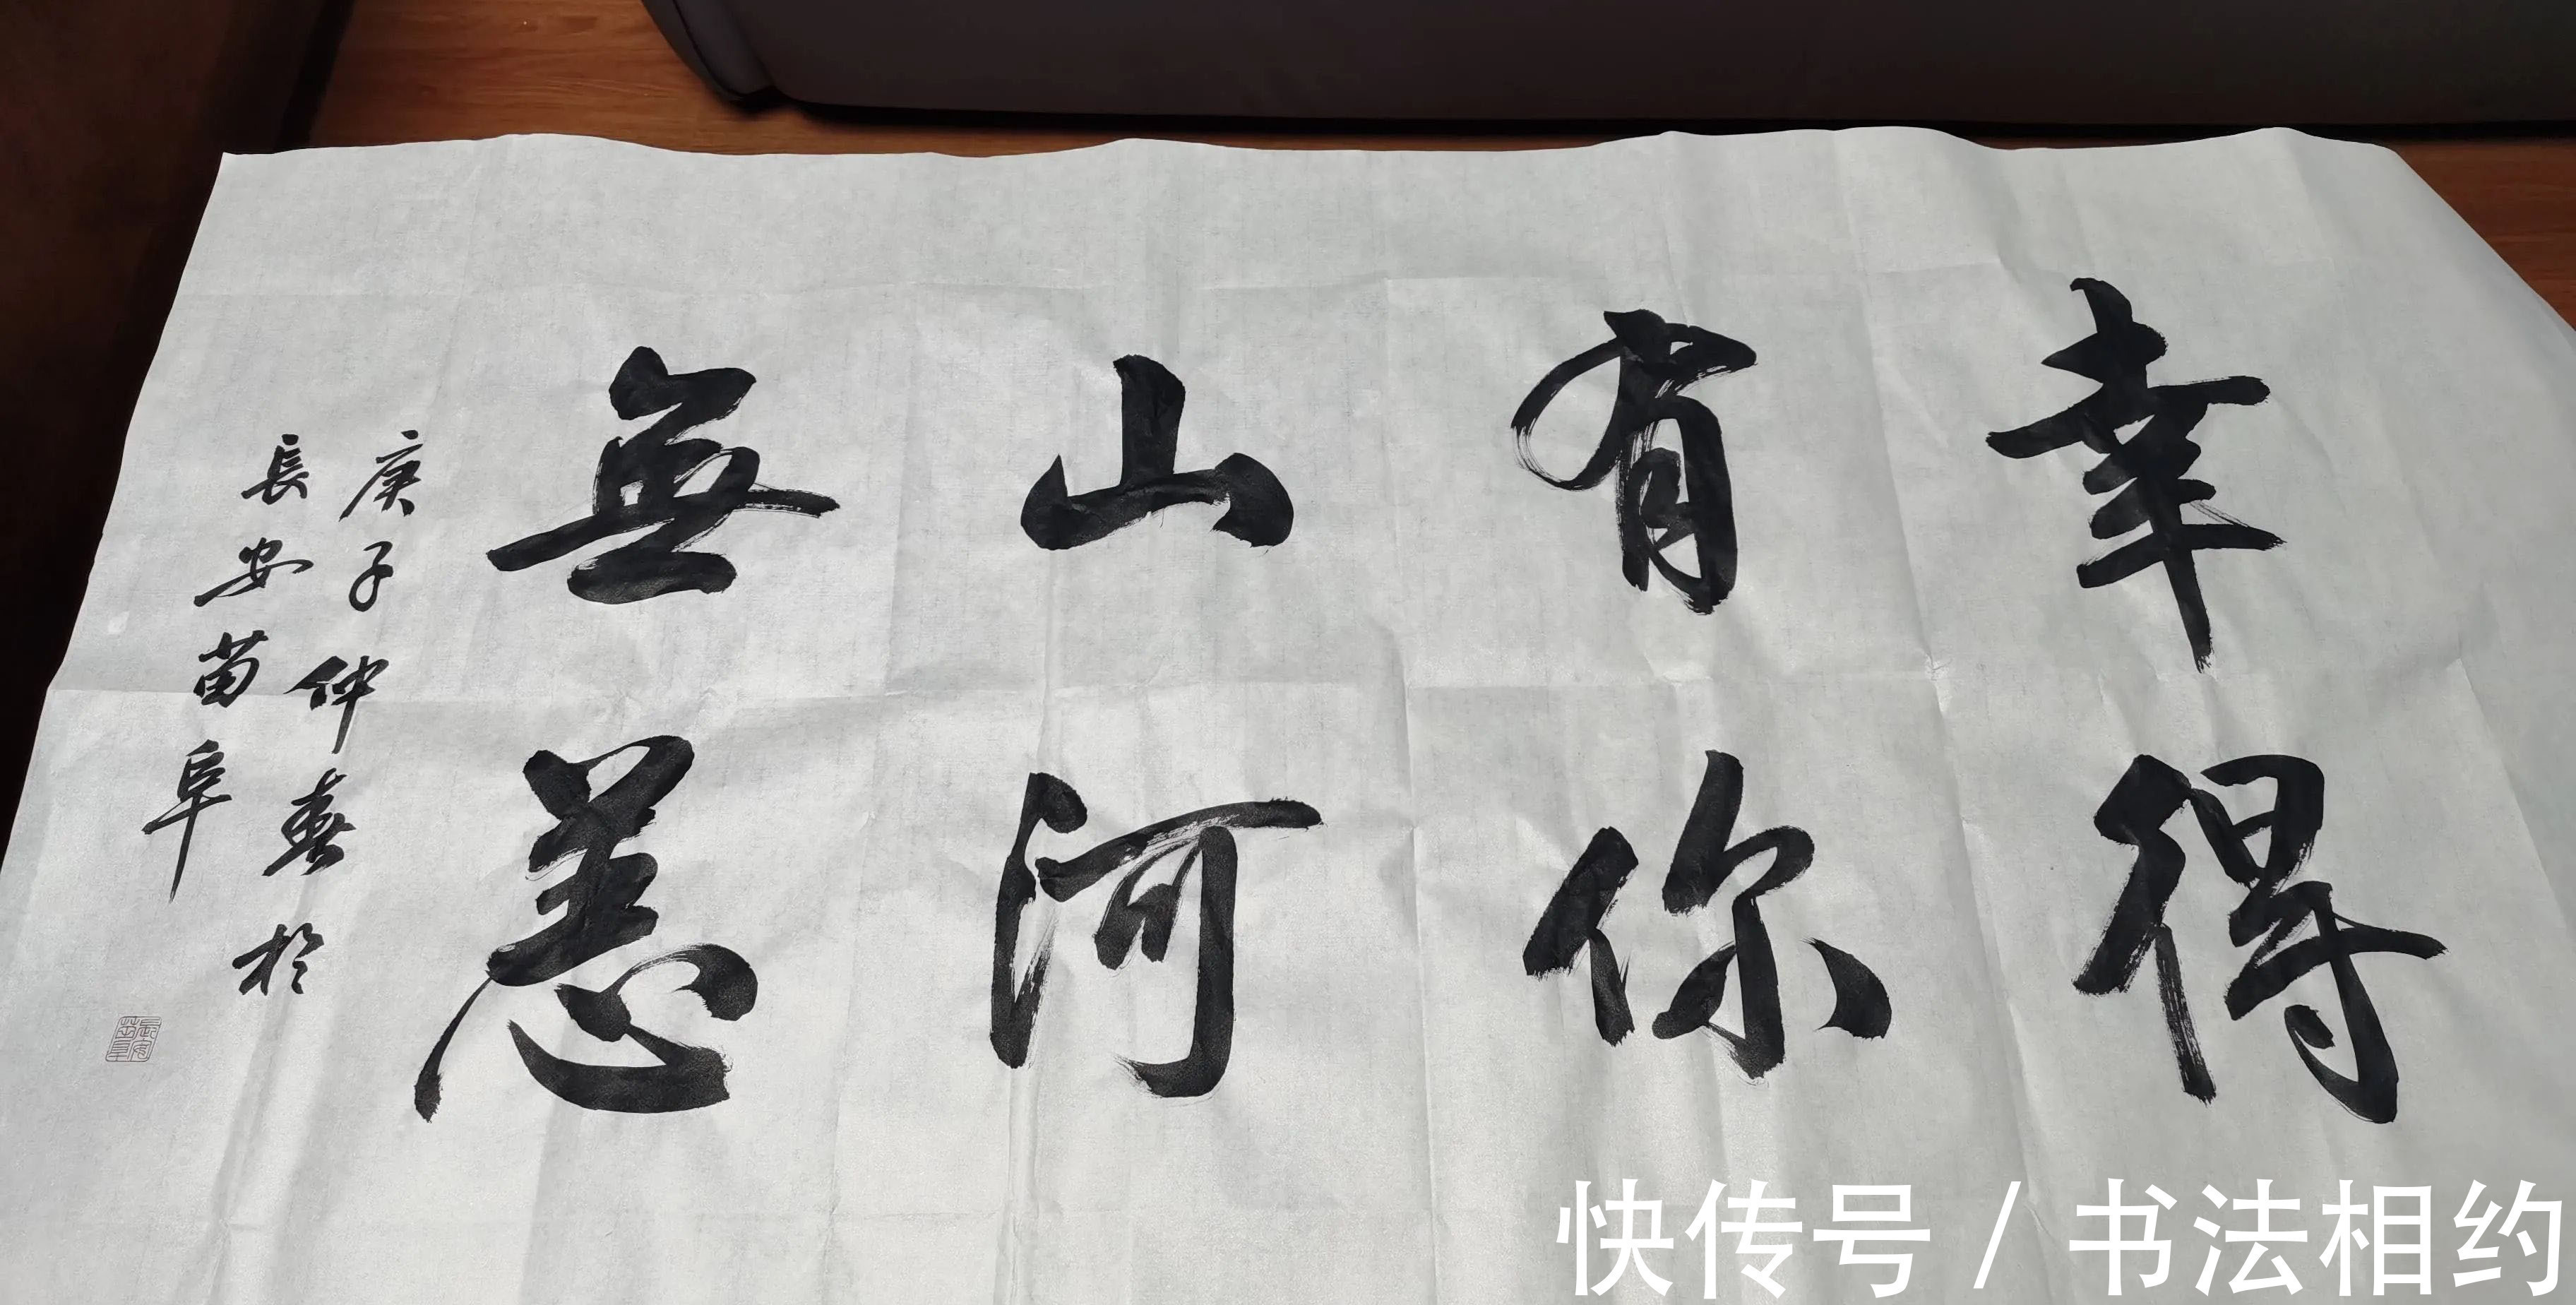 幸得
有你
山河
無恙
庚子仲春於
長安苗阜
長安
苗阜
快传号/书法相约